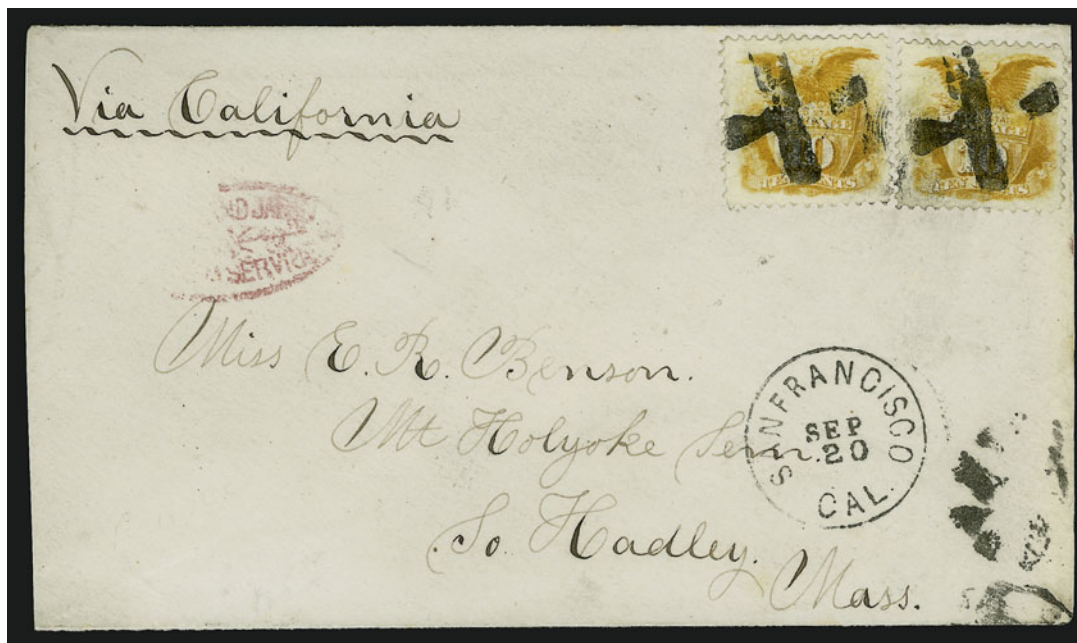 Via California
TEN CENTS
TEN CENTS
SERVICE
Miss E. R. Benson.
Mt Holyoke Sem.
So. Hadley.
Mass.
SAN FRANCISCO
SEP
20
CAL.